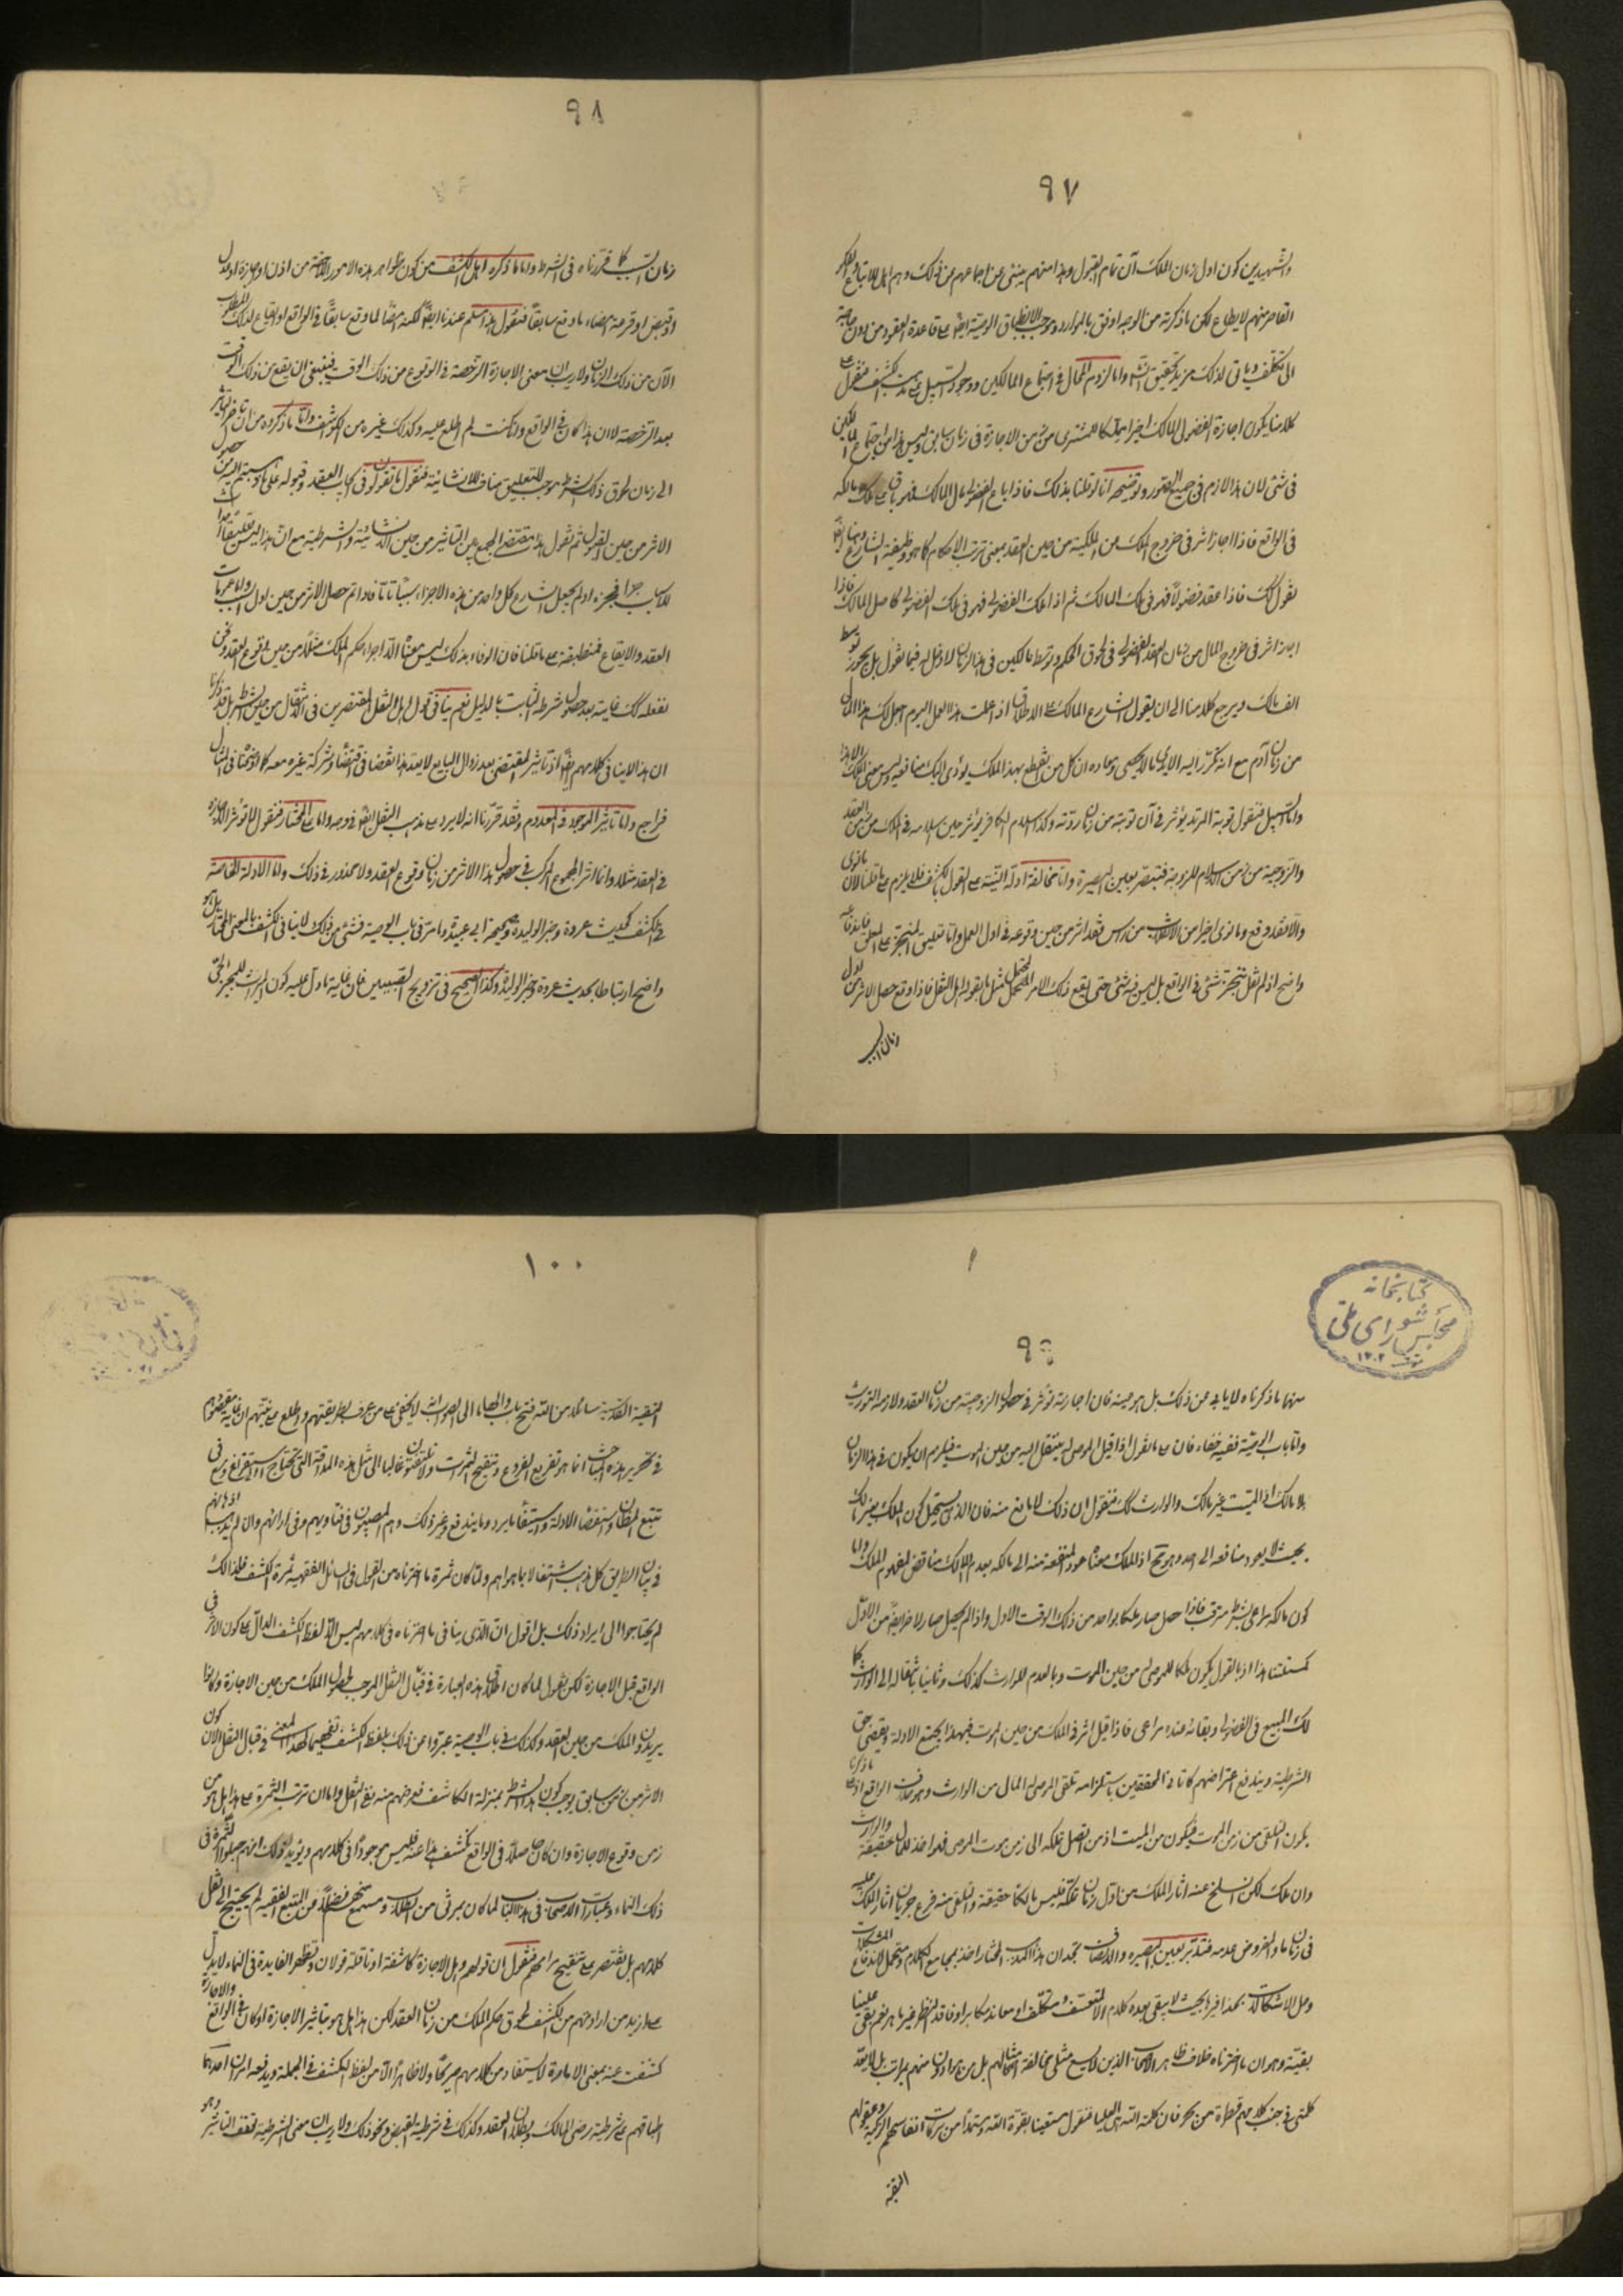 ٩٧
والشهيدين كون اول زمان الملك آن تمام القبول وهذا منهم ينبئ عن اجماعهم عن ذلك
القاصر منهم لايطاع لكن ما ذكرته من الوجه اوفق بالموارد وموجب لانطباق الوصية ايضا على قاعدة العقود من دون حاجة
الى تكلف وياتى لذلك مزيد تحقيق انشاء واما لزوم المحال فى اجتماع المالكين ووجود السبيل على مذهب الكشف فنقول على
كلامنا يكون اجازة الفضولى المالك اخيرا مملكا للمشترى من زمن الاجازة فى زمان سابق وليس هذا من اجتماع المالكين
فى شئ لان هذا لازم فى جميع الصور وتوضيحه انا لو قلنا بذلك فاذا باع الفضولى مال المالك فهو باق على ملك مالكه
فى الواقع فاذا اجاز اثر فى خروج الملك من الملكية من حين العقد بمعنى ترتب الاحكام كما هو وظيفة الشارع
يقول لك فاذا عقد فضولا فهو فى ملك المالك ثم اذا ملك الفضولى فهو فى ملك الفضولى كما صل المالك فاذا
اجاز اثر فى خروج المال من زمان العقد الفضولى فى لحوق الحكم وتوسط مالكين فى هذا الزمان لا دخل له فيما نقول بل يجوز توسط
الف مالك ويرجع كلامنا الى ان يقول الشارع المالك على الاطلاق اذا عملت هذا العمل اليوم اجعل لك هذا المال
من زمان آدم مع انه
واما السبيل فنقول توبة المرتد يؤثر فى آن توبته من زمان ردّته وكذا اسلام الكافر يؤثر حين اسلامه فى الملك من زمن العقد
والزوجية من زمن اسلام الزوجة فتبصر بعين البصيرة واما مخالفة ادلة النية على القول بالكشف فلا يلزم على ما قلنا لان ما نوى
والّا فقد وقع وما نوى اخيرا من الانقلاب من راس فقد اثر من حين وقوعه فى اول العمل واما تعليق المنجز على المعلق
واضح اذ لم نقل بتنجز شئ فى الواقع بل ليس فيه شئ حتى يقع ذلك الامر المحتمل مثل ما يقوله اهل النقل فاذا وقع حصل الاثر من اول
زمان السبب
٩٨
زمان السبب كما قررناه فى الشرط واما ما ذكره اهل الكشف من كون ظواهر هذه الامور اللاحقة من اذن او اجازة او بذل
او قبض او قرعة امضاء ما وقع سابقا فنقول هذا مسلم عندنا ايضا لكنه امضا لما وقع سابقا فى الواقع
الآن من ذلك الزمان ولا ريب ان معنى الاجازة الرخصة فى الوقوع من ذلك الوقت فينبغى ان يقع من ذلك الوقت
بعد الرخصة لا ان هذا كان فى الواقع وان كنت لم اطلع عليه وكذلك غيره من الكواشف واما ما ذكروه من ان تاخر التاثير
الى زمان لحوق ذلك الشرط موجب للتعليق مناف للانشائية فنقول ما تقولون فى ايجاب العقد وقبوله
الاثر من حين القبول ثم نقول هذا مقتضى الجمع بين التاثير من حين الانشائية والشرطية مع ان هذا ليس تعليقا
للاسباب جزا فجزء او لم يجعل الشارع كل واحد من هذه الاجزاء سببا تاما فاذا تم حصل الاثر من حين اول السبب واما عمومات
العقد والايقاع فمنطبقة على ما قلنا فان الوفاء بذلك ليس معناه الّا اجراء حكم الملك مثلا من حين وقوع العقد ونحن
نفعله لك غايته بعد حصول شرطه الثابت بالدليل نعم ينافى قول اهل النقل المقتصرين فى الانتقال من حين الشرط بل قد ذكرنا
ان هذا لا ينافى كلامهم ايضا اذ تاثير المقتضى بعد زوال المانع لا يعد هذا نقضا فى اقتضاء وشركة غيره معه كما اوضحنا فى المثال
فراجع واما تاثير الموجود فى المعدوم فقد قررنا انه لا يرد على مذهب النقل ايضا فى وجه واما على المختار فنقول لا تؤثر الاجازة
فى العقد مثلا وانما اثر المجموع المركب فى حصول هذا الاثر من زمان وقوع العقد ولا محذور فى ذلك واما الادلة الخاصة
فى الكشف كحديث عروة وخبر الوليدة وصحيحة ابى عبيدة وما مر فى باب الوصية فشئ من ذلك لا ينافى الكشف بالمعنى المختار بل هو
واضح ارتباطا بحديث عروة وخبر الوليدة وكذا الصحيح فى تزويج الصبيين فان غاية ما دل عليه كون الارث للمجيز الحى
٩٩
منهما ما ذكرناه لا ياباه عن ذلك بل هو عينه فان اجازته تؤثر فى حصول الزوجية من زمان العقد ولازمه التوريث
واما باب الوصية ففيه خفاء فان على ما نقول اذا قبل الموصى له ينتقل اليه من حين الموت فيلزم ان يكون فى هذا الزمان
بلا مالك اذ الميت غير مالك والوارث كك فنقول ان ذلك لا مانع منه فان الذى يستحيل كون الملك بغير مالك
بحيث لا يعود منافعه الى احد وهو قبيح اذ الملك معناه عود المنفعة منه الى مالكه بعدم المالك مناقض لمفهوم الملك واما
كون مالكه مراعى بشرط مترقب فاذا حصل صار ملكا لواحد من ذلك الوقت الاول واذا لم يحصل صار لاخر ايضا من الاول
كمسئلتنا هذا اذ بالقبول يكون ملكا للموصى له من حين الموت وبالعدم للوارث كذلك وثانيا بانتقاله الى الوارث كما
لك المبيع فى الفضولى وبقائه عنده مراعى فاذا قبل اثر فى الملك من حين الموت فبهذا يجتمع الادلة ويقضى حق
الشرطية ويندفع اعتراضهم كما تا فى المحققين باستلزامه تلقى الموصى له المال من الوارث وهو خلاف الواقع اذ على ما ذكرنا
يكون التلقى من زمن الموت فيكون من الميت اذ من اتصل تملكه الى زمن موت الموصى فله اخذ المال حقيقة والوارث
وان ملك لكن انسلخ عنه اثار الملك من اول زمان تملكه فليس مالكا حقيقة والتلقى منه فرع جريان اثار الملك عليه
فى زمان ما والمفروض عدمه فتدبر بعين البصيره والانصاف تجد ان هذا المذهب المختار اخذ بمجامع الكلام ومتحمل لاندفاع المشكلات
وحل الاشكالات بحذافيرها بحيث لا يبقى بعده كلام الا لمتعسف ومتكلف او معاند مكابر او فاقد النظر غير ماهر نعم بقى علينا
بقيته وهو ان ما اخترناه خلاف ظاهر الاصحاب الذين لا يسع مثلى مخالفة امثالهم بل من هو ادون منهم بمراتب بل لا يعد
كلمتى فى جنب كلامهم قطرة من بحر فان كلمة الله هى العليا فنقول مستعينا بقوة الله ومستمدا من بركات انفاسهم الزكية وعقولهم
النقية
١٠٠
النقية القدسية سائلا من الله فتح باب والهاما الى الصواب لا يخفى على من عرف طريقتهم واطلع على سجيتهم ان غاية مقصودهم
فى تحرير هذه المباحث انما هو تفريع الفروع وتنقيح الثمرات ولا يلتفتون غالبا الى مثل هذه المداقة التى يحتاج
تتبع المظان واستقصاء الادلة واستيفاء ما يرد وما يندفع وغير ذلك وهم المصيبون فى فتاويهم وفى ارائهم وان لم يذهب اذهانهم
فى بيان الطريق كل مذهب اشتغالا بما هو اهم ولما كان ثمرة ما اخترناه من القول فى المسائل الفقهية ثمرة الكشف فلذا لك
لم يحتاجوا الى ايراد ذلك بل اقول ان الذى ينافى ما اخترناه فى كلامهم ليس الّا لفظ الكشف الدالّ على كون الاثر فى
الواقع قبل الاجازة لكن نقول لما كان اطلاق هذه العبارة فى قبال النقل الموجب لحصول الملك من حين الاجازة وكانوا
يريدون الملك من حين العقد وكذلك فى باب الوصية عبّروا عن ذلك بلفظ الكشف تفهيما لهذا المعنى فى قبال النقل لان كون
الاثر من زمن سابق يوجب كون هذا الشرط بمنزلة الكاشف فغرضهم منه نفى النقل واما ان ترتب الثمرة على هذا هل هو من
زمن وقوع الاجازة وان كان حاصلا فى الواقع كشف هذا عنه فليس موجودا فى كلامهم ويؤيد لك انهم جعلوا الثمرة فى
ذلك النماء وعبارات الاصحاب فى هذا الباب لما كان بمرئى من الطلاب ومسمع فضلا من المتتبع الفقيه لم يحتج الى نقل
كلامهم بل نقتصر على تنقيح مرامهم فنقول ان قولهم وهل الاجازة كاشفة او ناقلة قولان وتظهر الفايدة فى النماء لا يدل
على ازيد من ارادتهم من الكشف لحوق حكم الملك من زمان العقد لكن هذا هل هو بتاثير الاجازة او كان فى الواقع والاجازة
كشفت عنه بمعنى الامارة لا يستفاد من كلامهم صريحا ولا ظاهرا الّا من لفظ الكشف فى الجملة ويدفعه امران احدهما
اطباقهم على شرطية رضى المالك وبطلان العقد وكذلك فى شرطية القبض ونحو ذلك ولا ريب ان معنى الشرطية توقف التاثير وهو
كتابخانه
مجلس شوراى ملى
١٣٠٢